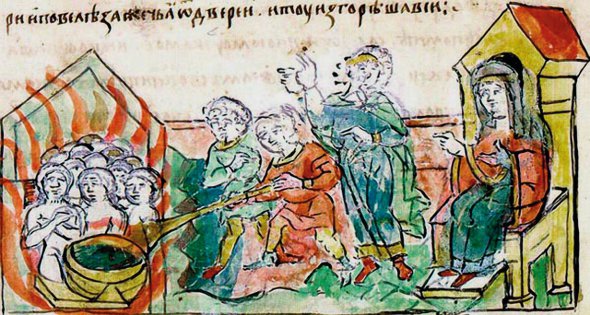 ри и повелѣ зажечьѧ ѿ двереи · и тоу изгорѣша вси: